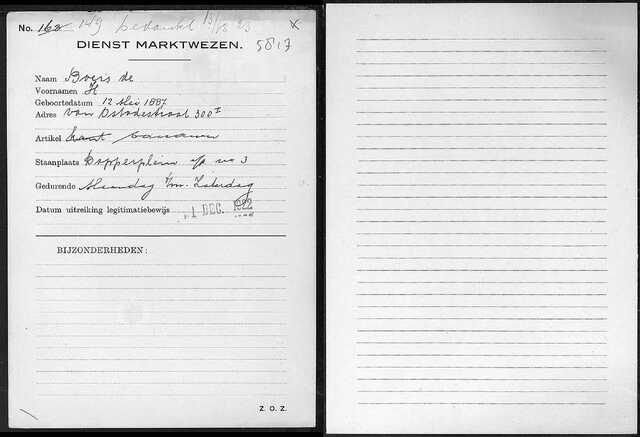 No. 162 149 bedankt 13/8 23 x
DIENST MARKTWEZEN.
5817
Naam Boers de
Voornamen H
Geboortedatum 12 Mei 1887
Adres van Ostadestraat 300 I
Artikel bananen
Staanplaats Dapperplein no 3
Gedurende Maandag t/m Zaterdag
Datum uitreiking legitimatiebewijs 1 DEC. 1922
BIJZONDERHEDEN:
Z. O. Z.